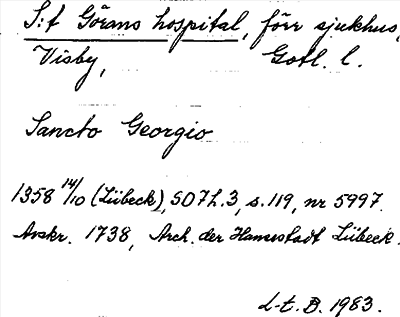 S:t Görans hospital, förr sjukhus,
Visby, Gotl. l.
Sancto Georgio
1358 14/10 (Lübeck), SD 7 h. 3, s. 119, nr 5997.
Avskr. 1738, Arch. der Hansestadt Lübeck.
L-t. B. 1983.